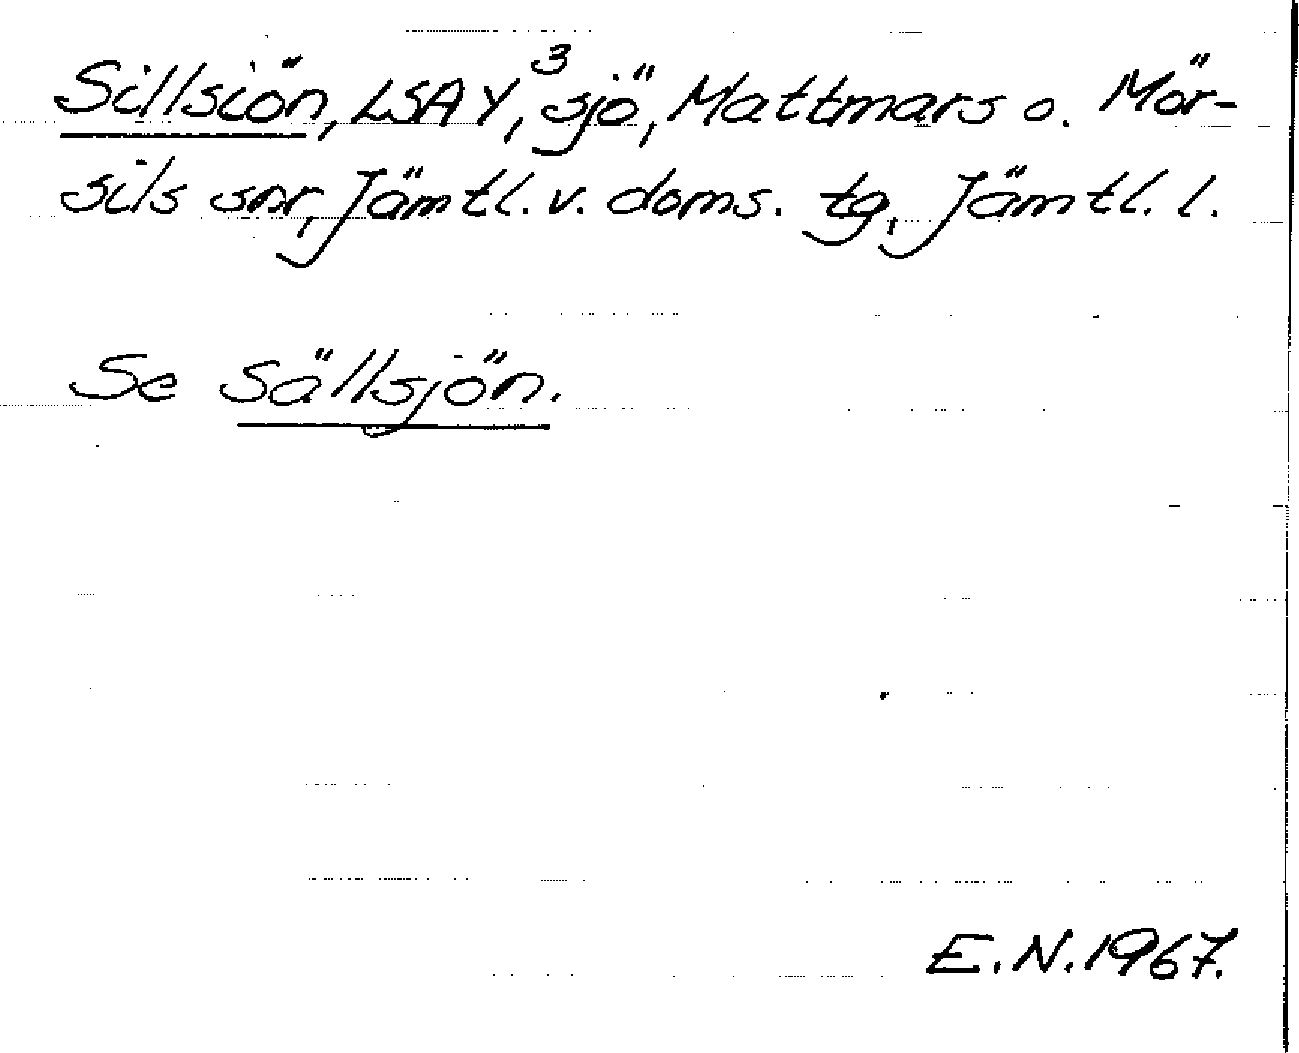 Sillsiön, LSA Y,³ sjö, Mattmars o. Mör-
sils snr, Jämtl. v. doms. tg, Jämtl. l.
Se Sällsjön.
E.N. 1967.